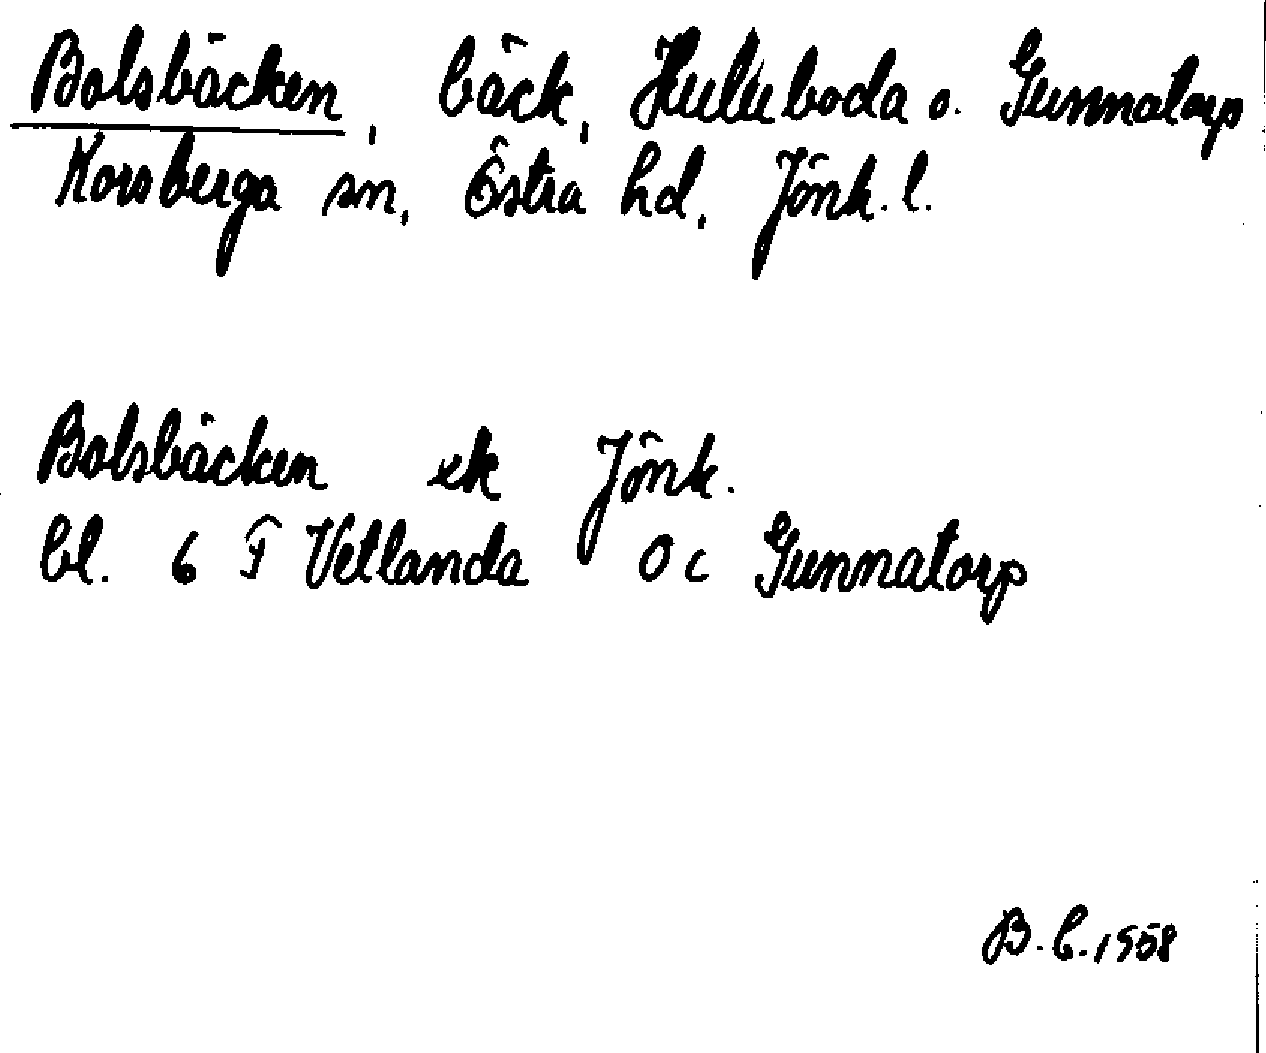 Bolsbäcken, bäck, Hulu boda o. Gunnatorp
Korsberga sn, Östra hd, Jönk. l.
Bolsbäcken ek Jönk.
bl. 6 F Vetlanda 0 c Gunnatorp
B. C. 1958